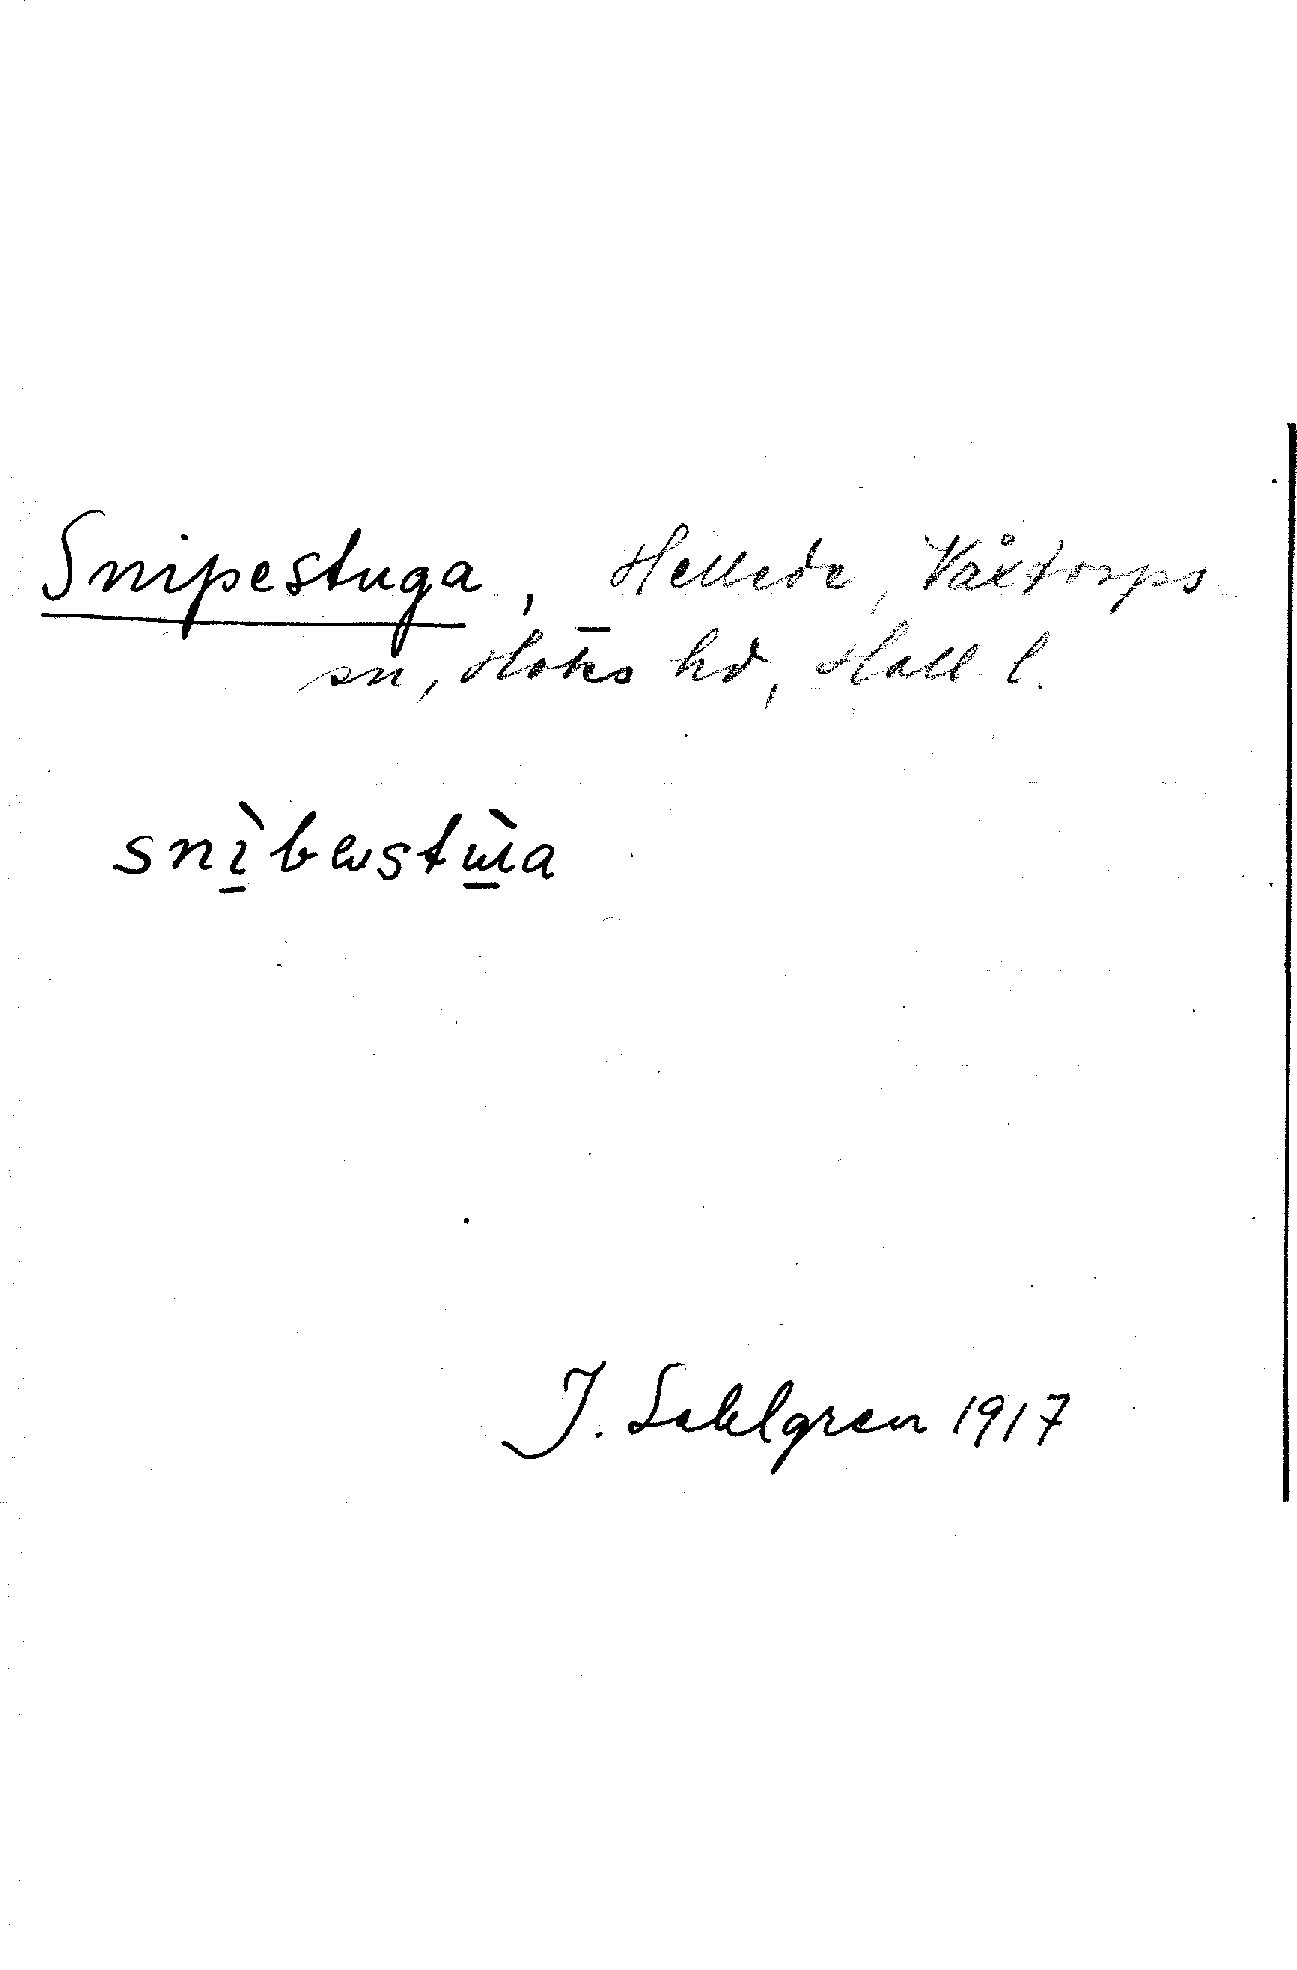 Snipestuga, Hellede, Våxtorps
sn, Höks hd, Hall l.
snìbəstùa
J. Sahlgren 1917